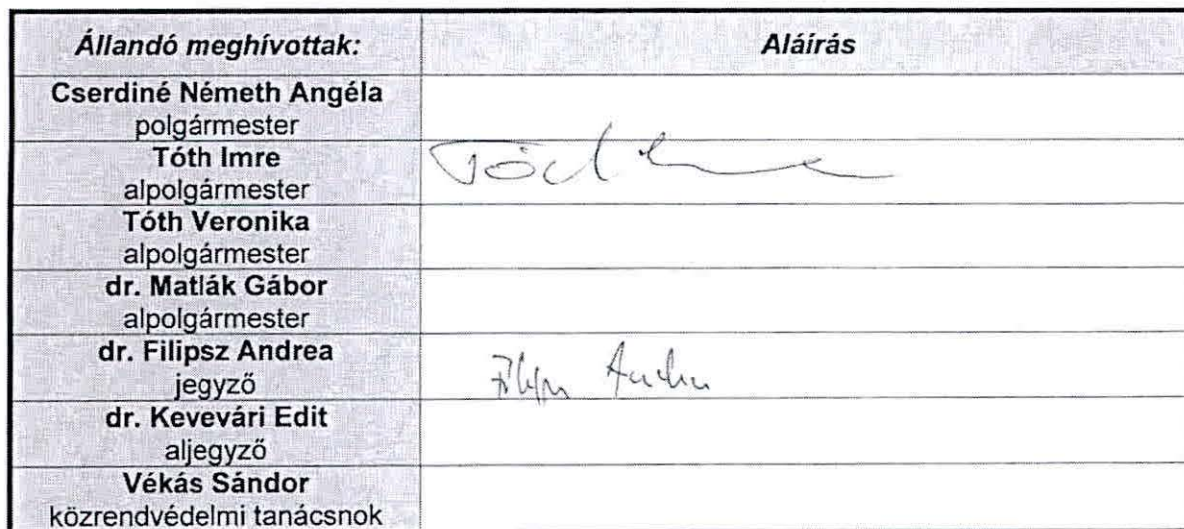 Állandó meghívottak: Aláírás
Cserdiné Németh Angéla
polgármester
Tóth Imre
alpolgármester
Tóth Veronika
alpolgármester
dr. Matlák Gábor
alpolgármester
dr. Filipsz Andrea
jegyző
dr. Kevevári Edit
aljegyző
Vékás Sándor
közrendvédelmi tanácsnok